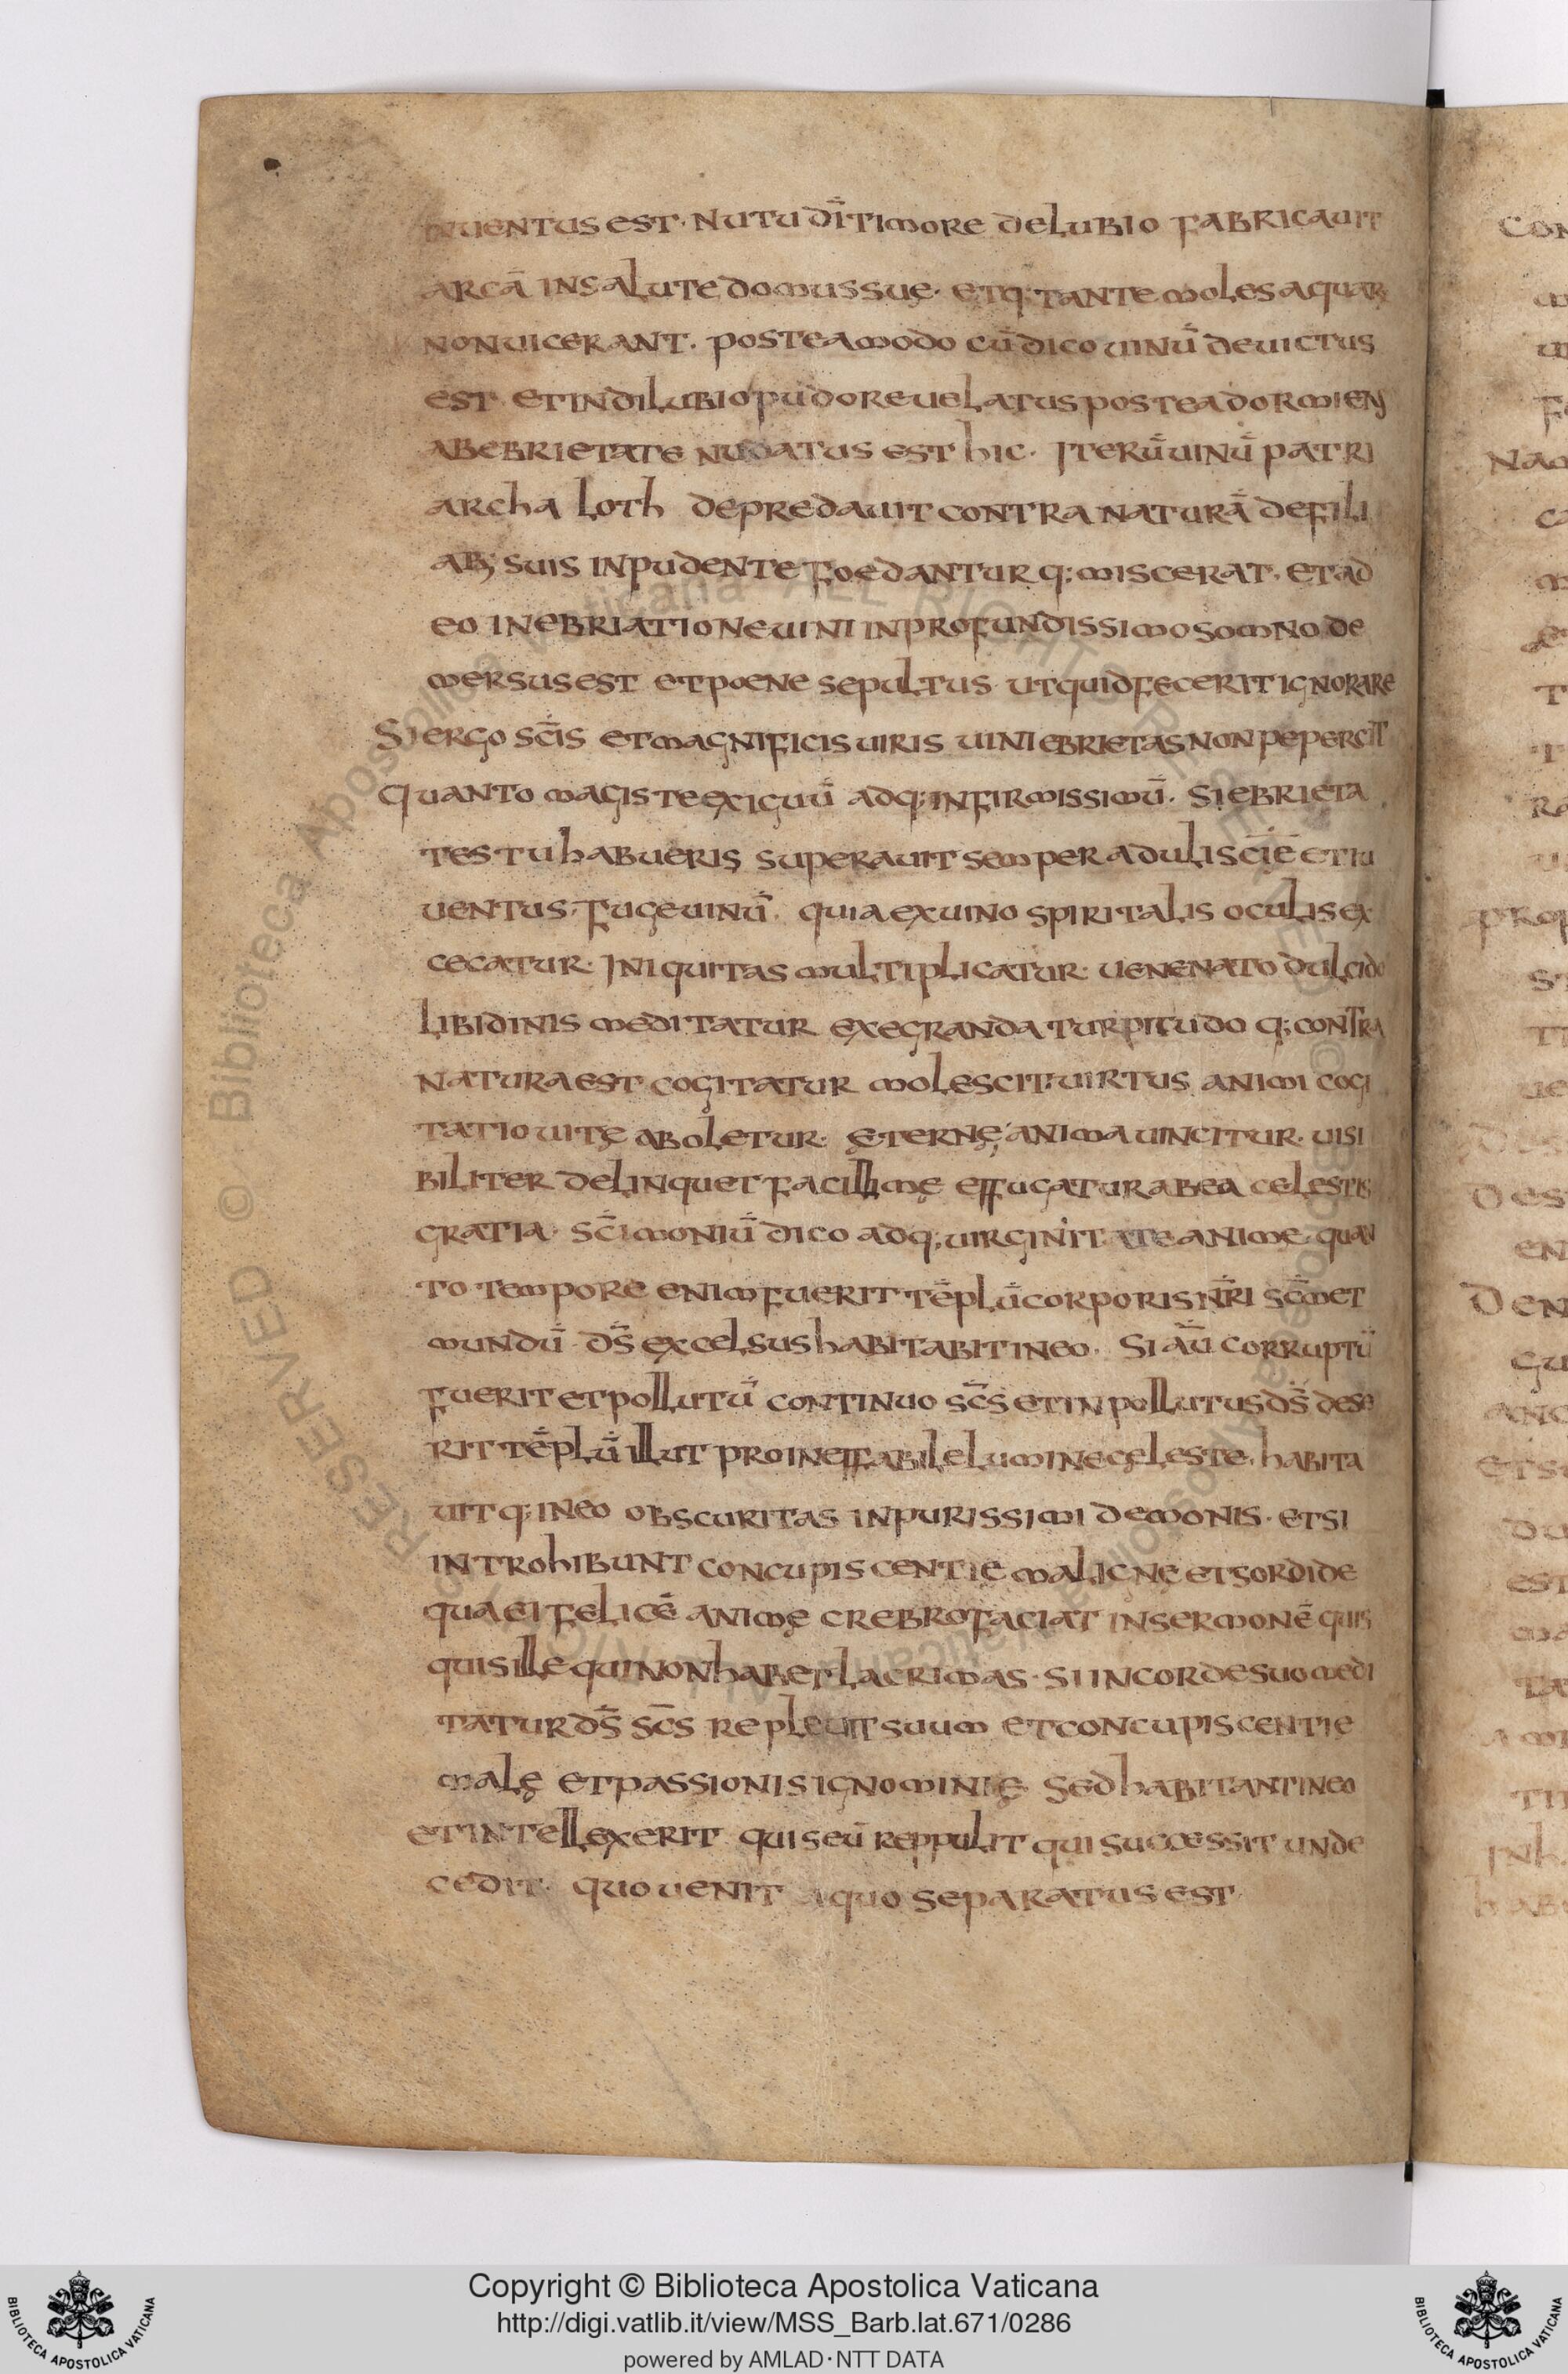 nuentus est · nutu dī timore delubio fabricauit
arcā in salute domus sue · et q; tante moles aquar
non uicerant . postea modo cū dico uinū deuictus
est et in dilubio pudore uelatus postea dormiens
ab ebrietate nudatus est hic · Iterū uinū patri
archa loth depredauit contra naturā de fili
ab; suis inpudente foedantur q; miscerat . et ad
eo inebriatione uini in profundissimo somno de
mersus est et poene sepultus ut quid fecerit ignorare
Si ergo sc̄is et magnificis uiris uini ebrietas non pepercit
quanto magis te exiguū adq; infirmissimū . Si ebrieta
tes tu habueris superauit semper adulisc̄iē et iu
uentus · Fuge uinū quia ex uino spiritalis oculis ex
cecatur · Iniquitas multiplicatur · uenenato dulcido
libidinis meditatur exegranda turpitudo q; contra
natura est cogitatur molescit uirtus animi cogi
tatio uitę aboletur · ęternę anima uincitur · uisi
biliter delinquet facillimę effugatur ab ea celestis
gratia sc̄imoniū dico adq; uirginitate anime quan
to tempore enim fuerit tēplū corporis nr̄i sc̄m et
mundū ds̄ excelsus habitabit in eo · Si aū corruptū
fuerit et pollutū continuo sc̄s et inpollutus ds̄ dese
rit tēplū illut pro ineffabile lumine çeleste habita
uit q; in eo obscuritas inpurissimi demonis · et si
introhibunt concupiscentie maligne et sordide
qua ei felicē animę crebro faciat in sermonē quis
quis ille qui non habet lacrimas · si in corde suo medi
tatur ds̄ sc̄s repleuit suum et concupiscentie
malę et passionis ignominię Sed habitant in eo
et intellexerit quis eū reppulit qui successit unde
cedit · quo uenit a quo separatus est
Copyright © Biblioteca Apostolica Vaticana
http://digi.vatlib.it/view/MSS_Barb.lat.671/0286
powered by AMLAD·NTT DATA